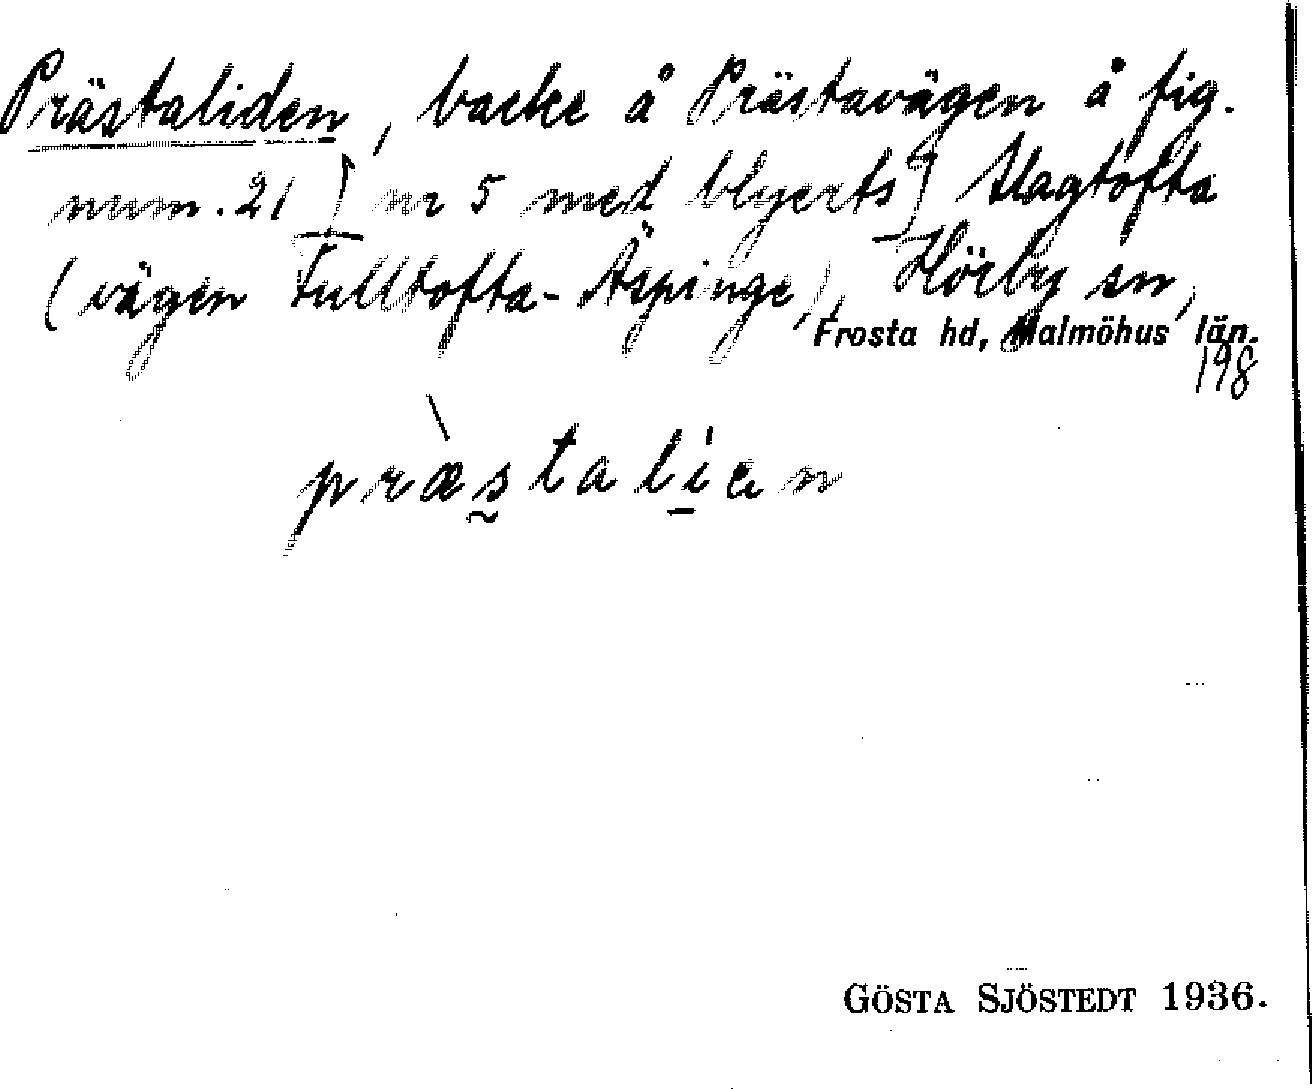 Prästaliden, backe å Prästavägen å fig.
num. 21 [nr 5 med blyerts] Slagtofta
(vägen Fulltofta-Äspinge), Hörby sn,
Frosta hd, Malmöhus län.
198
præstalien
GÖSTA SJÖSTEDT 1936.